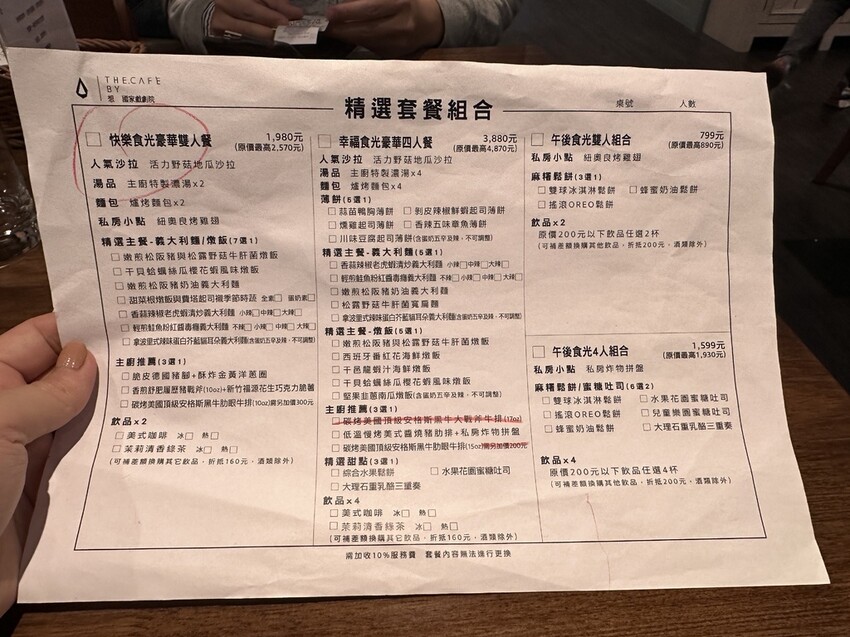 THE.CAFE
BY
想 國家戲劇院
精選套餐組合
桌號 人數
快樂食光豪華雙人餐 1,980元
(原價最高2,570元)
人氣沙拉 活力野菇地瓜沙拉
湯品 主廚特製濃湯x2
麵包 爐烤麵包x2
私房小點 紐奧良烤雞翅
精選主餐-義大利麵/燉飯(7選1)
嫩煎松阪豬與松露野菇牛肝菌燉飯
干貝蛤蠣絲瓜櫻花蝦風味燉飯
嫩煎松阪豬奶油義大利麵
甜菜根燉飯與費塔起司襯季節時蔬 全素 蛋奶素
香蒜辣椒老虎蝦清炒義大利麵 小辣 中辣 大辣
輕煎鮭魚粉紅醬毒纏義大利麵 不辣 小辣 中辣 大辣
拿波里式辣味蛋白芥藍貓耳朵義大利麵(含蛋奶五辛及辣，不可調整)
主廚推薦(3選1)
脆皮德國豬腳+酥炸金黃洋蔥圈
香煎舒肥履歷豬戰斧(10oz)+新竹福源花生巧克力脆薯
碳烤美國頂級安格斯黑牛肋眼牛排(10oz)需另加價300元
飲品x2
美式咖啡 冰 熱
茉莉清香綠茶 冰 熱
(可補差額換購其它飲品，折抵160元，酒類除外)
幸福食光豪華四人餐 3,880元
(原價最高4,870元)
人氣沙拉 活力野菇地瓜沙拉
湯品 主廚特製濃湯x4
麵包 爐烤麵包x4
薄餅(5選1)
蒜苗鴨胸薄餅 剝皮辣椒鮮蝦起司薄餅
燻雞起司薄餅 香辣五味章魚薄餅
川味豆腐起司薄餅(含蛋奶五辛及辣，不可調整)
精選主餐-義大利麵(5選1)
香蒜辣椒老虎蝦清炒義大利麵 小辣 中辣 大辣
輕煎鮭魚粉紅醬毒纏義大利麵 不辣 小辣 中辣 大辣
嫩煎松阪豬奶油義大利麵
松露野菇牛肝菌寬扁麵
拿波里式辣味蛋白芥藍貓耳朵義大利麵(含蛋奶五辛及辣，不可調整)
精選主餐-燉飯(5選1)
嫩煎松阪豬與松露野菇牛肝菌燉飯
西班牙番紅花海鮮燉飯
干邑龍蝦汁海鮮燉飯
干貝蛤蠣絲瓜櫻花蝦風味燉飯
堅果韭蔥南瓜燉飯(含蛋奶五辛，不可調整)
主廚推薦(3選1)
碳烤美國頂級安格斯黑牛大戰斧牛排(17oz)
低溫慢烤美式醬燒豬肋排+私房炸物拼盤
碳烤美國頂級安格斯黑牛肋眼牛排(15oz)需另加價200元
精選甜點(3選1)
綜合水果鬆餅 水果花園蜜糖吐司
大理石重乳酪三重奏
飲品x4
美式咖啡 冰 熱
茉莉清香綠茶 冰 熱
(可補差額換購其它飲品，折抵160元，酒類除外)
午後食光雙人組合 799元
(原價最高890元)
私房小點 紐奧良烤雞翅
麻糬鬆餅(3選1)
雙球冰淇淋鬆餅 蜂蜜奶油鬆餅
搖滾OREO鬆餅
飲品x2
原價200元以下飲品任選2杯
(可補差額換購其他飲品，折抵200元，酒類除外)
午後食光4人組合 1,599元
(原價最高1,930元)
私房小點 私房炸物拼盤
麻糬鬆餅/蜜糖吐司(6選2)
雙球冰淇淋鬆餅 水果花園蜜糖吐司
搖滾OREO鬆餅 兒童樂園蜜糖吐司
蜂蜜奶油鬆餅 大理石重乳酪三重奏
飲品x4
原價200元以下飲品任選4杯
(可補差額換購其他飲品，折抵200元，酒類除外)
需加收10%服務費 套餐內容無法進行更換